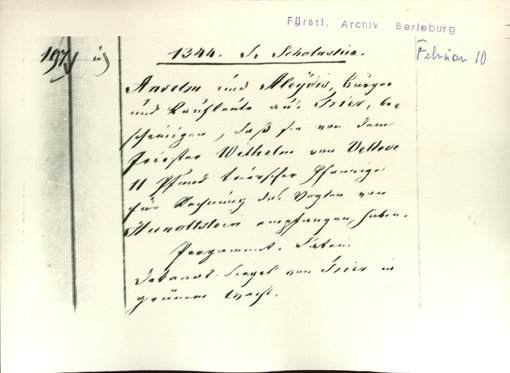 Fürstl. Archiv Berleburg
Februar 10
197
1344. S. Scholastica.
Anselm und Aleydis, Bürger
und Kaufleute aus Trier, be-
scheinigen, daß sie von dem
Priester Wilhelm von
11 Pfund trierscher Pfennige
für Rechnung des Vogtes von
Hunoltstein empfangen haben.
Pergament. Latein.
Dekanat-Siegel von Trier in
grünem Wachs.